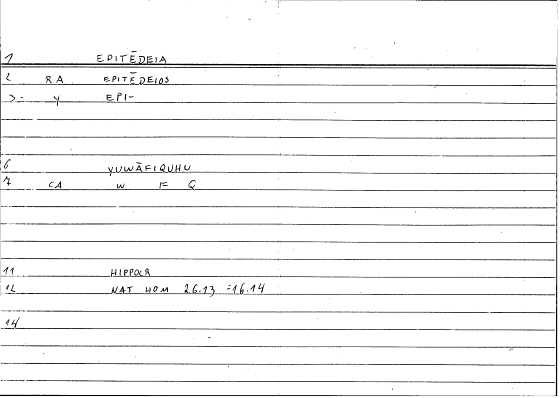 1 EPITĒDEIA
2 RA EPITĒDEIOS
3 Y EPI-
6 YUWĀFIQUHU
7 CA W F Q
11 HIPPOCR
12 NAT HOM 26.13 =16.14
14